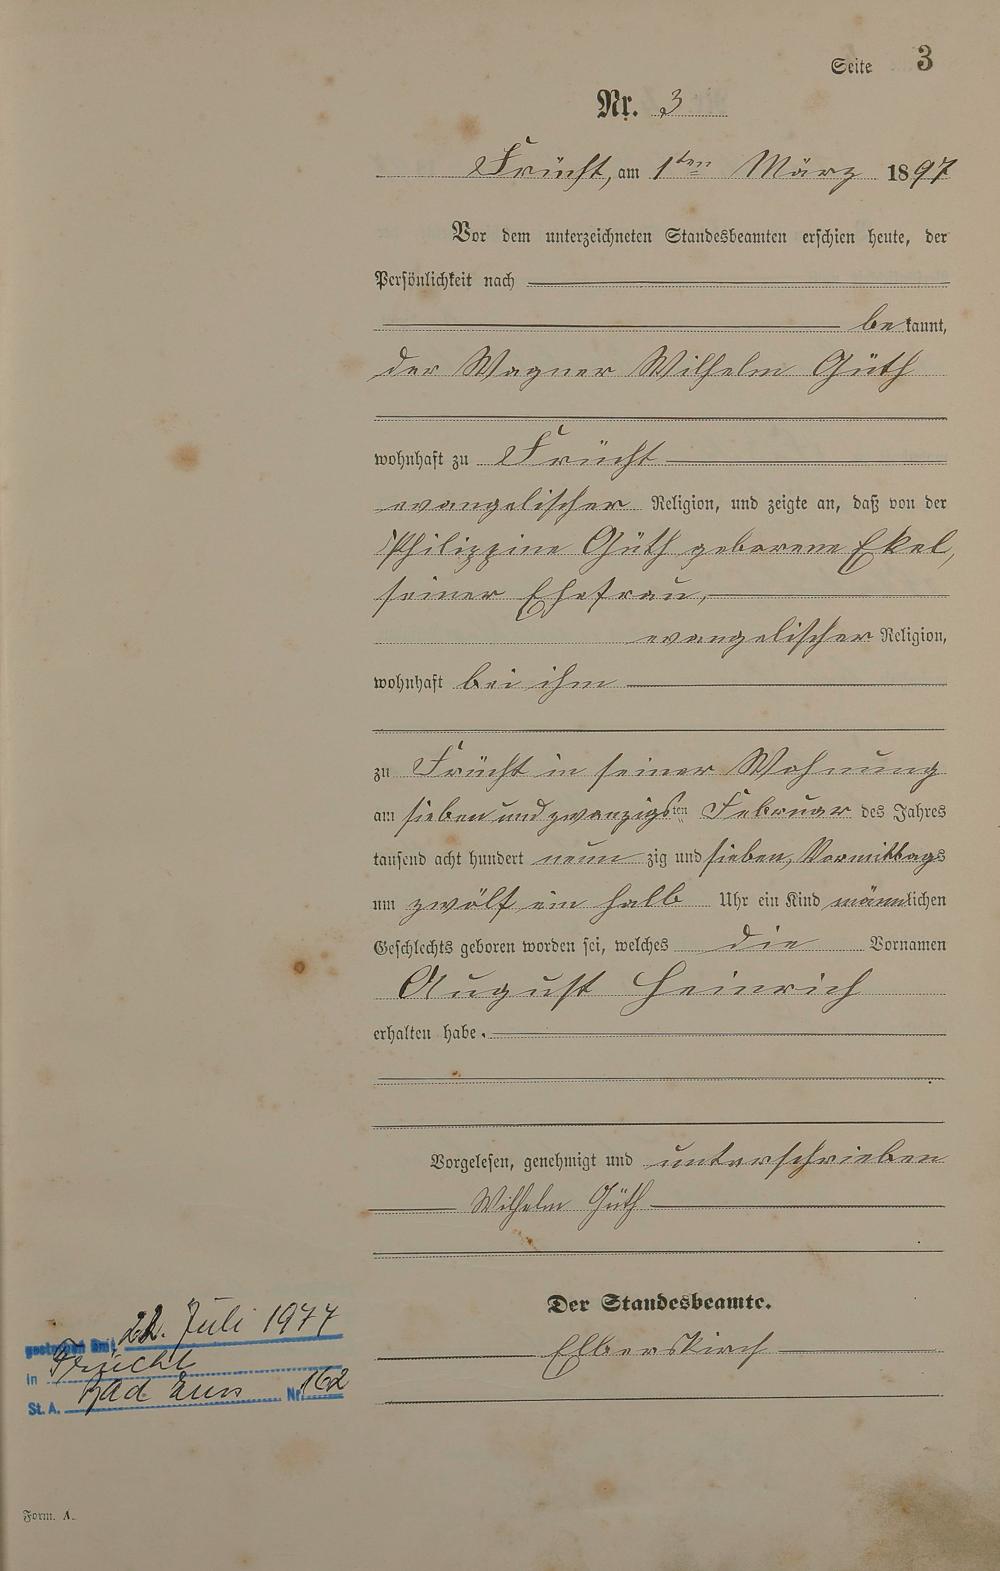 Seite 3
Nr. 3
Frücht, am 1ten März 1897
Vor dem unterzeichneten Standesbeamten erschien heute, der
Persönlichkeit nach
bekannt,
der Wagner Wilhelm Güth
wohnhaft zu Frücht
evangelischer Religion, und zeigte an, daß von der
Philippine Güth geborene Ekel,
seiner Ehefrau,
evangelischer Religion,
wohnhaft bei ihm
zu Frücht in seiner Wohnung
am sieben und zwanzigsten Februar des Jahres
tausend acht hundert neunzig und sieben, Vormittags
um zwölf ein halb Uhr ein Kind männlichen
Geschlechts geboren worden sei, welches die Vornamen
August Heinrich
erhalten habe.
Vorgelesen, genehmigt und unterschrieben
Wilhelm Güth
Der Standesbeamte.
Elberskirch
gestorben am 22. Juli 1977
in Frücht
St. A. Bad Ems Nr. 162
Form. A.